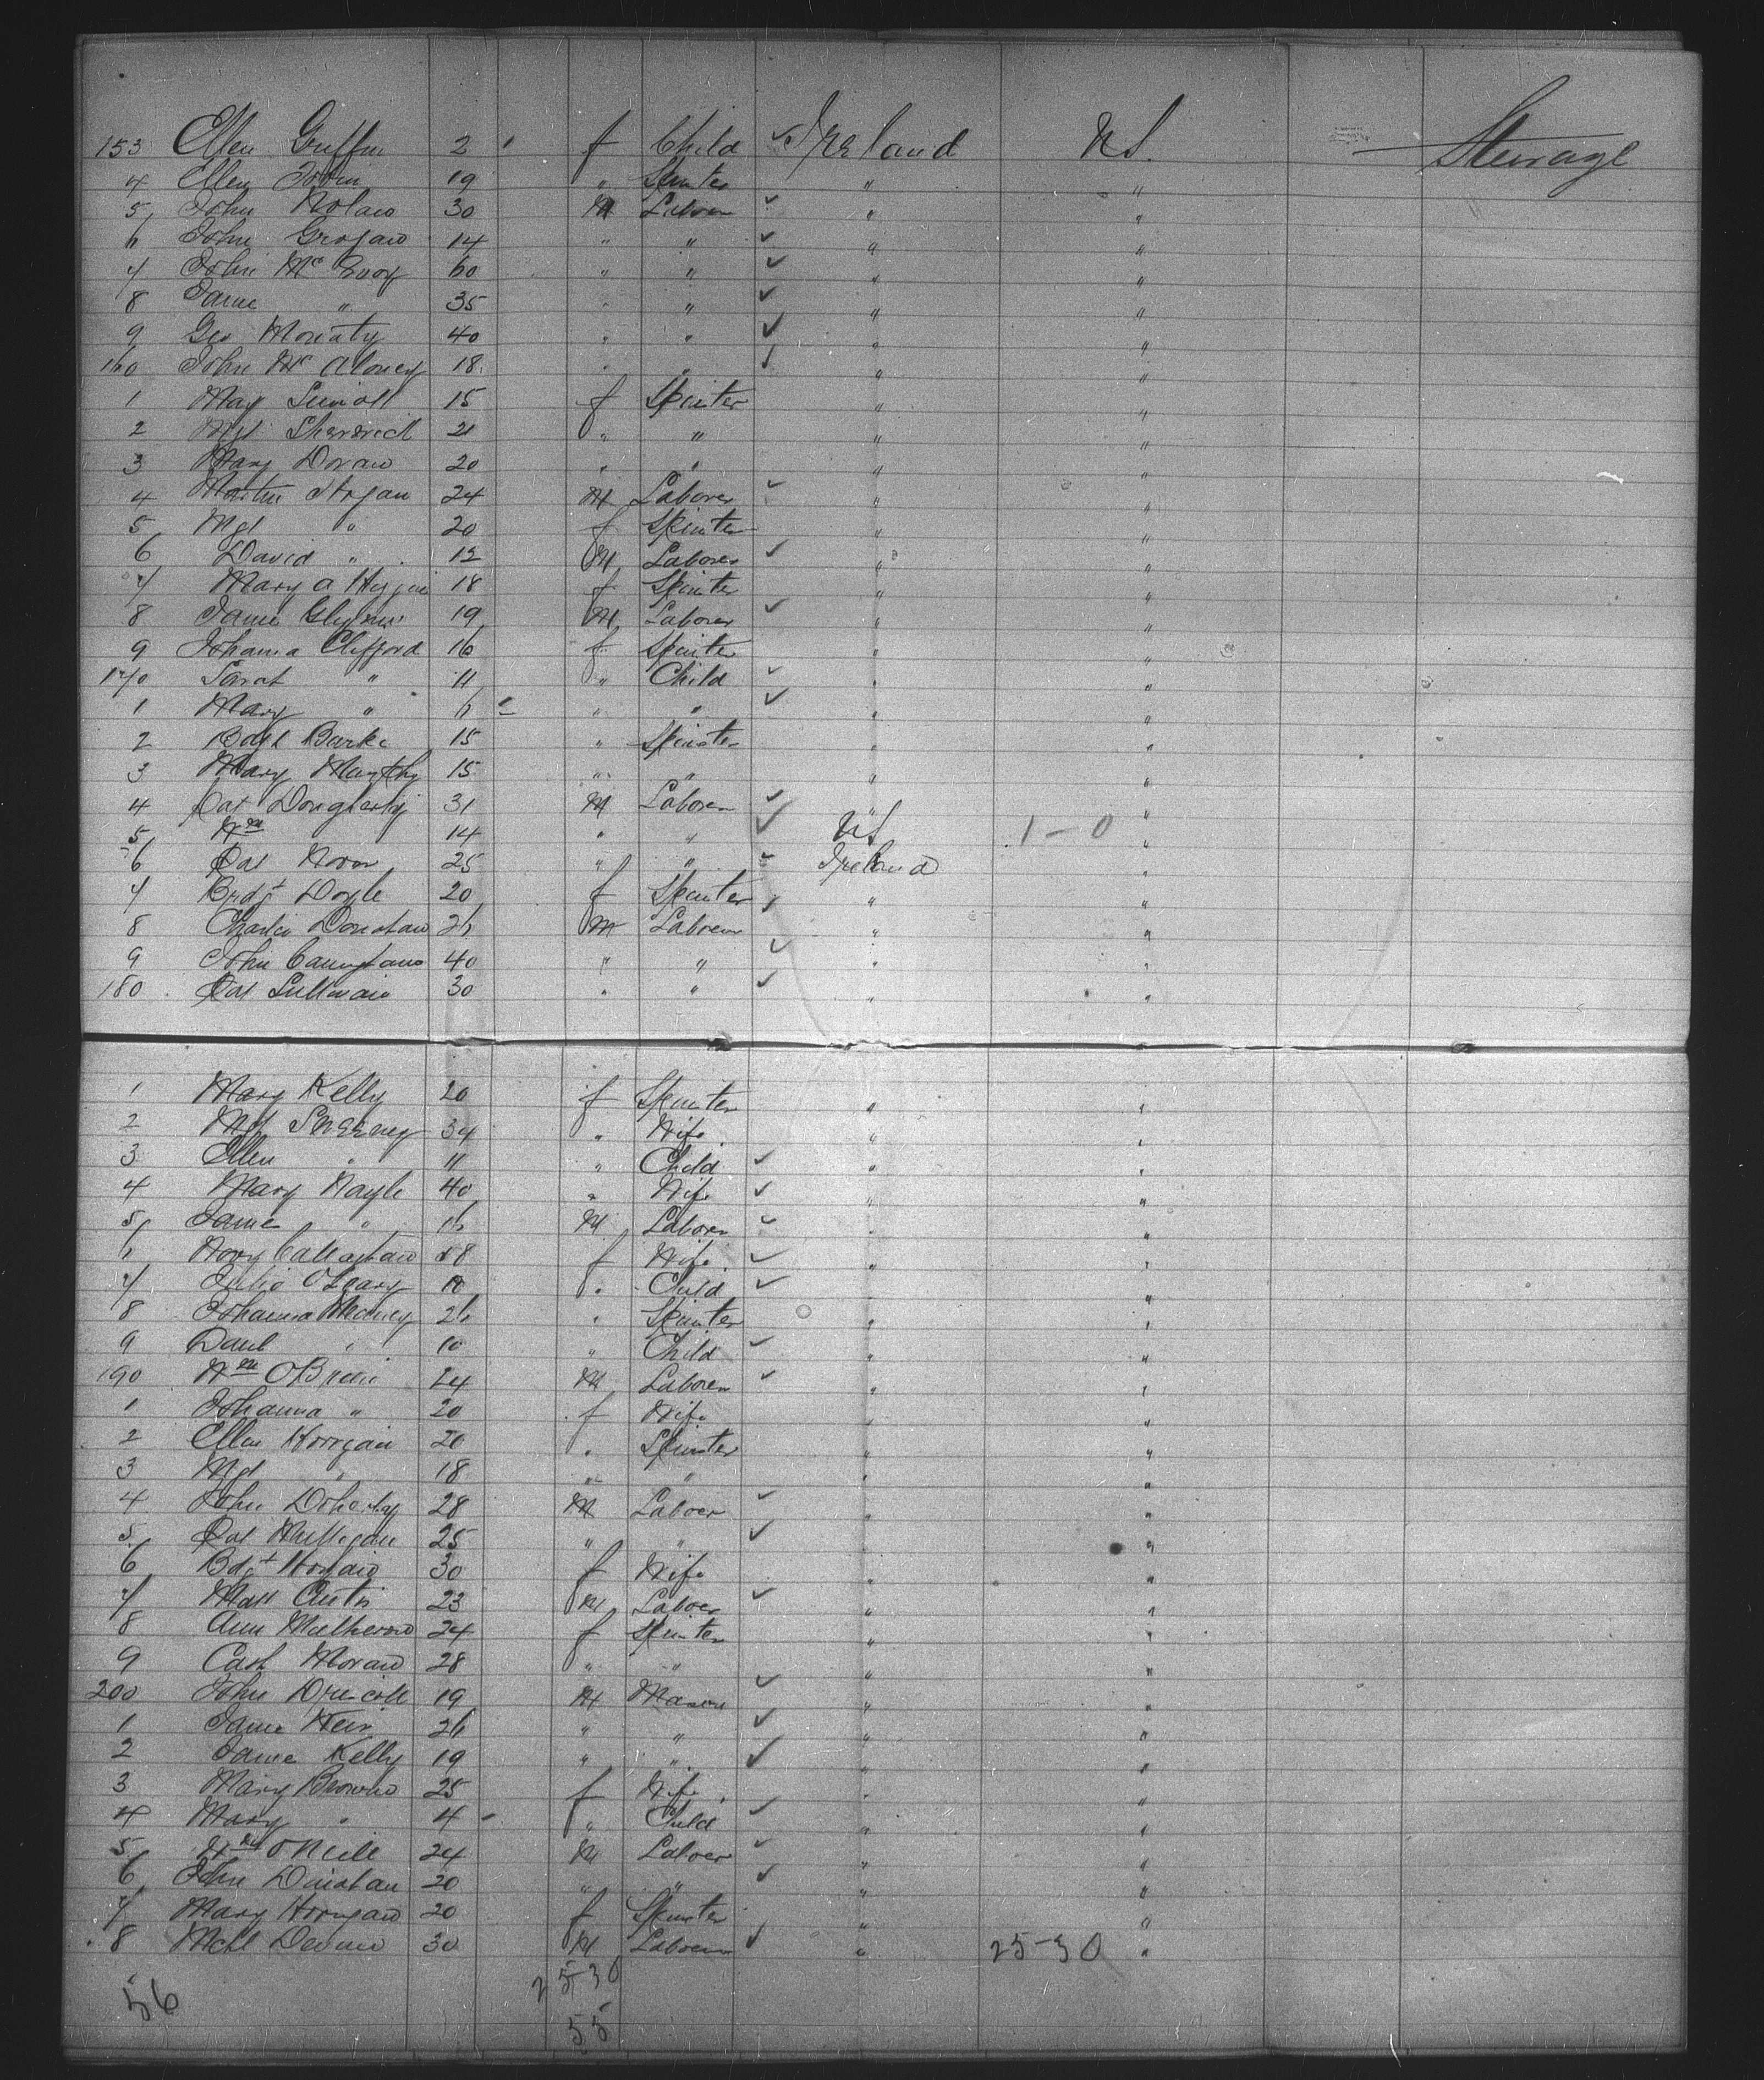 153 Ellen Griffin 2 f Child ✓ Ireland U.S. Steerage
4 Ellen Tobin 19 " Spinster " "
5 John Nolan 30 M Laborer ✓ " "
6 John Grogan 14 " " ✓ " "
7 John McEvoy 60 " " ✓ " "
8 Jame " 35 " " ✓ " "
9 Geo Moriaty 40 " " ✓ " "
160 John McAloney 18 " " ✓ " "
1 May 15 f Spinster " "
2 Mgt 21 " " " "
3 Mary Doran 20 " " " "
4 Martin Hogan 24 M Laborer ✓ " "
5 Mgt " 20 f Spinster " "
6 David " 12 M Laborer ✓ " "
7 Mary A Higgin 18 f Spinster " "
8 Jame Glynn 19 M Laborer ✓ " "
9 Johanna Clifford 16 f Spinster " "
170 Sarah " 11 " Child ✓ " "
1 Mary " 6 " " ✓ " "
2 Bdgt Burke 15 " Spinster " "
3 Mary Murphy 15 " " " "
4 Pat Dougherty 31 M Laborer ✓ " "
5 Wm 14 " " ✓ U.S. 1-0 "
6 Pat 25 " " ✓ Ireland "
7 Brdgt Doyle 20 f Spinster ✓ " "
8 Charlie Donohan 26 M Laborer " "
9 John 40 " " ✓ " "
180 Pat Sullivan 30 " " ✓ " "
1 Mary Kelly 20 f Spinster " "
2 Mgt Sweeney 34 " Wife " "
3 Ellen " 11 " Child ✓ " "
4 Mary Nagle 40 " Wife ✓ " "
5 Jame " 16 M Laborer ✓ " "
6 Nory Callaghan 58 f Wife ✓ " "
7 Julia O'Leary 10 " Child ✓ " "
8 Johanna 26 " Spinster " "
9 Danl " 10 " Child ✓ " "
190 Wm O'Brien 24 M Laborer ✓ " "
1 Johanna " 20 f Wife " "
2 Ellen Horrgan 20 " Spinster " "
3 Mgt " 18 " " " "
4 John Doherty 28 M Laborer ✓ " "
5 Pat Mulligan 25 " " ✓ " "
6 Bdgt Hogan 30 f Wife " "
7 Matt Curtis 23 M Laborer ✓ " "
8 Ann 24 f Spinster " "
9 Cath Moran 28 " " " "
200 John Driscoll 19 M Mason ✓ " "
1 Jame Weir 26 " " ✓ " "
2 Jame Kelly 19 " " ✓ " "
3 Mary Browne 25 f Wife " "
4 Mary " 4 " Child ✓ " "
5 Wm O'Neill 24 M Laborer ✓ " "
6 John Donohan 20 " " ✓ " "
7 Mary Horrgan 20 f Spinster " "
8 Michl 30 M Laborer ✓ " 25-30 "
56 25-30
55